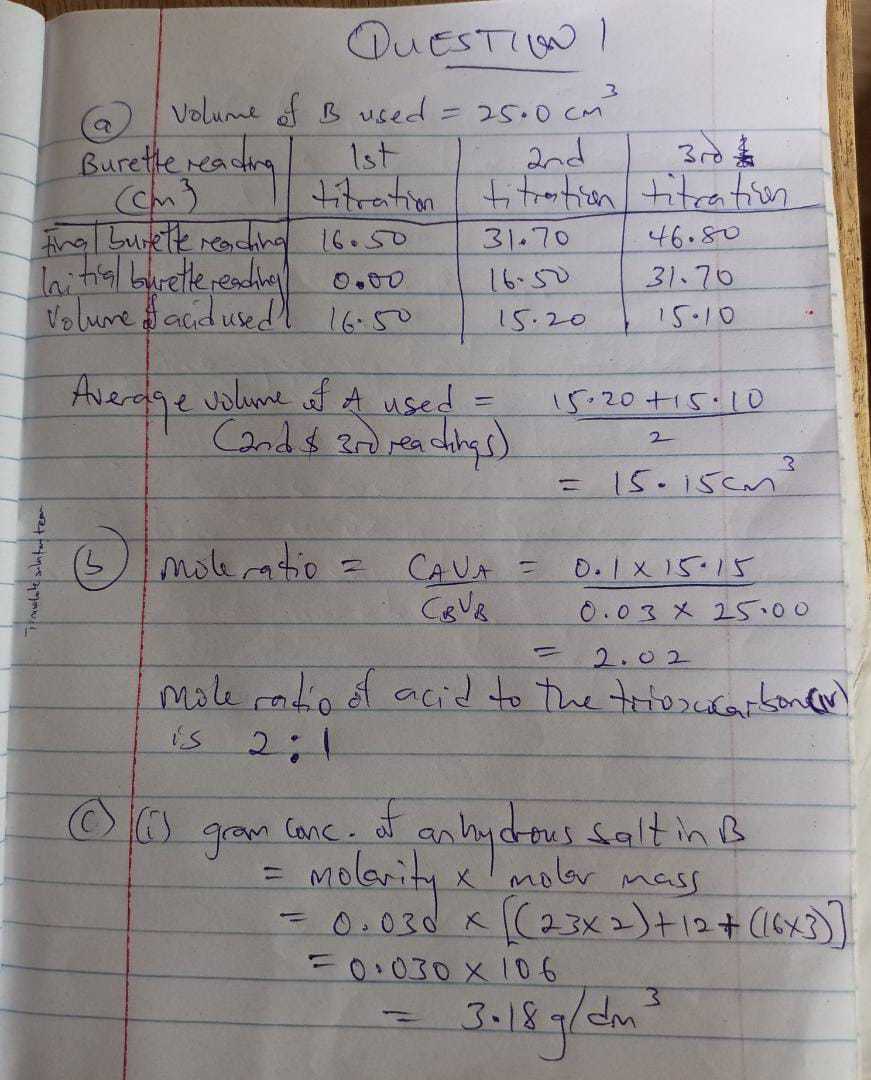 QUESTION 1
(a) Volume of B used = 25.0 cm³
Burette reading (cm³) | 1st titration | 2nd titration | 3rd titration
Final burette reading | 16.50 | 31.70 | 46.80
Initial burette reading | 0.00 | 16.50 | 31.70
Volume of acid used | 16.50 | 15.20 | 15.10
Average volume of A used = (15.20 + 15.10)/2
(2nd $ 3rd readings)
= 15.15cm³
(b) Mole ratio = CAVA/CBVB = (0.1 x 15.15)/(0.03 x 25.00)
= 2.02
Mole ratio of acid to the trioxocarbon(iv)
is 2:1
(c) (i) gram conc. of anhydrous salt in B
= molarity x molar mass
= 0.030 x [(23x2)+12+(16x3)]
= 0.030 x 106
= 3.18g/dm³